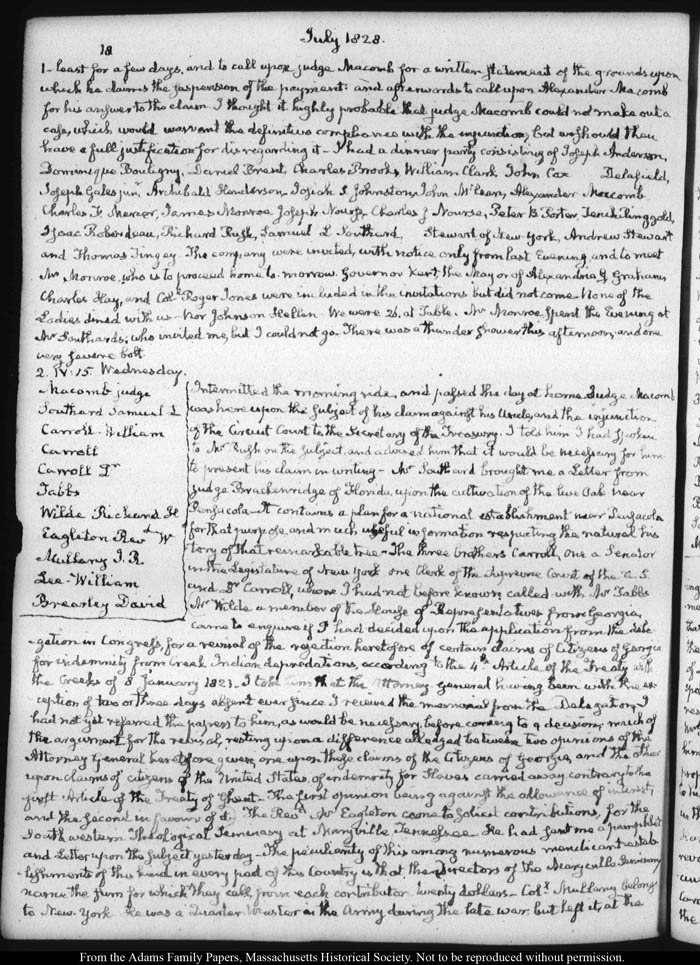 18
July 1828.
least for a few days, and to call upon judge Macomb for a written statement of the grounds upon
which he claims the suspension of the payment: and afterwards to call upon Alexander Macomb
for his answer to the claim I thought it highly probable that judge Macomb could not make out a
case, which would warrant the definitive compliance with the injunction, but we should then
have a full justification for disregarding it – I had a dinner party consisting of Joseph Anderson,
Dominique Bouligny, Daniel Brent, Charles Brooks, William Clark John Cox Delafield,
Joseph Gales junr. Archibald Henderson, Josiah S Johnston, John McLean, Alexander Macomb
Charles F. Mercer, James Monroe, Joseph Nourse, Charles J Nourse, Peter B Porter, Tench Ringgold,
Isaac Roberdeau, Richard Rush, Samuel L Southard, Stewart of New York, Andrew Stewart
and Thomas Tingey. The company were invited, with notice only from last Evening, and to meet
Mr Monroe, who is to proceed home to-morrow. Governor Kent, the Mayor of Alexandria G. Graham,
Charles Hay, and Coll. Roger Jones were included in the invitations but did not come. None of the
Ladies dined with us – Nor Johnson Hellen – We were 26. at Table. Mr Monroe spent the Evening at
Mr Southard's; who invited me, but I could not go. There was a thunder shower this afternoon, and one
very severe bolt
2. IV: 15. Wednesday.
Macomb judge
Southard Samuel L
Carroll - William
Carroll
Carroll Dr
Tabbs
Wilde Richard H
Eagleton Revd. W
Mullany J. R.
Lee - William
Brearley David
Intermitted the morning ride, and passed the day at home. Judge Macomb
was here upon the subject of his claim against his Uncle, and the injunction
of the Circuit Court to the Secretary of the Treasury. I told him I had spoken
to Mr Rush on the subject, and advised him that it would be necessary for him
to present his claim in writing – Mr Southard brought me a Letter from
Judge Brackenridge of Florida, upon the cultivation of the live Oak near
Pensacola – It contains a plan for a national establishment near Pensacola
for that purpose, and much useful information respecting the natural his
tory of that remarkable tree – The three brothers Carroll, one a Senator
in the Legislature of New York one Clerk of the Supreme Court of the U.S.
and Dr Carroll, whom I had not before known, called with Mr Tabbs
Mr Wilde a member of the House of Representatives from Georgia,
came to enquire if I had decided upon the application from the dele
-gation in Congress, for a revisal of the rejection heretofore of certain claims of Citizens of Georgia
for indemnity from Creek Indian depredations, according to the 4th Article of the Treaty with
the Creeks of 8 January 1821. I told him that the Attorney General having been with the ex-
ception of two or three days absent ever since I received the memorial from the Delegation, I
had not yet referred the papers to him, as would be necessary, before coming to a decision; much of
the argument for the revisal, resting upon a difference alledged between two opinions of the
Attorney General heretofore given, one upon these claims of the Citizens of Georgia, and the other
upon claims of citizens of the United States, of indemnity for slaves carried away contrary to the
first Article of the Treaty of Ghent – The first opinion being against the allowance of interest,
and the second in favour of it. The Revd. Mr Eagleton came to solicit contributions, for the
South western Theological Seminary at Maryville Tennessee. He had sent me a pamphlet
and Letter upon the subject yesterday – The peculiarity of this among numerous mendicant estab-
lishments of this kind in every part of this Country is that the Directors of the Maryville Seminary
name the sum for which they call, from each contributor. twenty dollars – Coll. Mullany belongs
to New York. He was a Quarter Master in the Army during the late war, but left it, at the
From the Adams Family Papers, Massachusetts Historical Society. Not to be reproduced without permission.